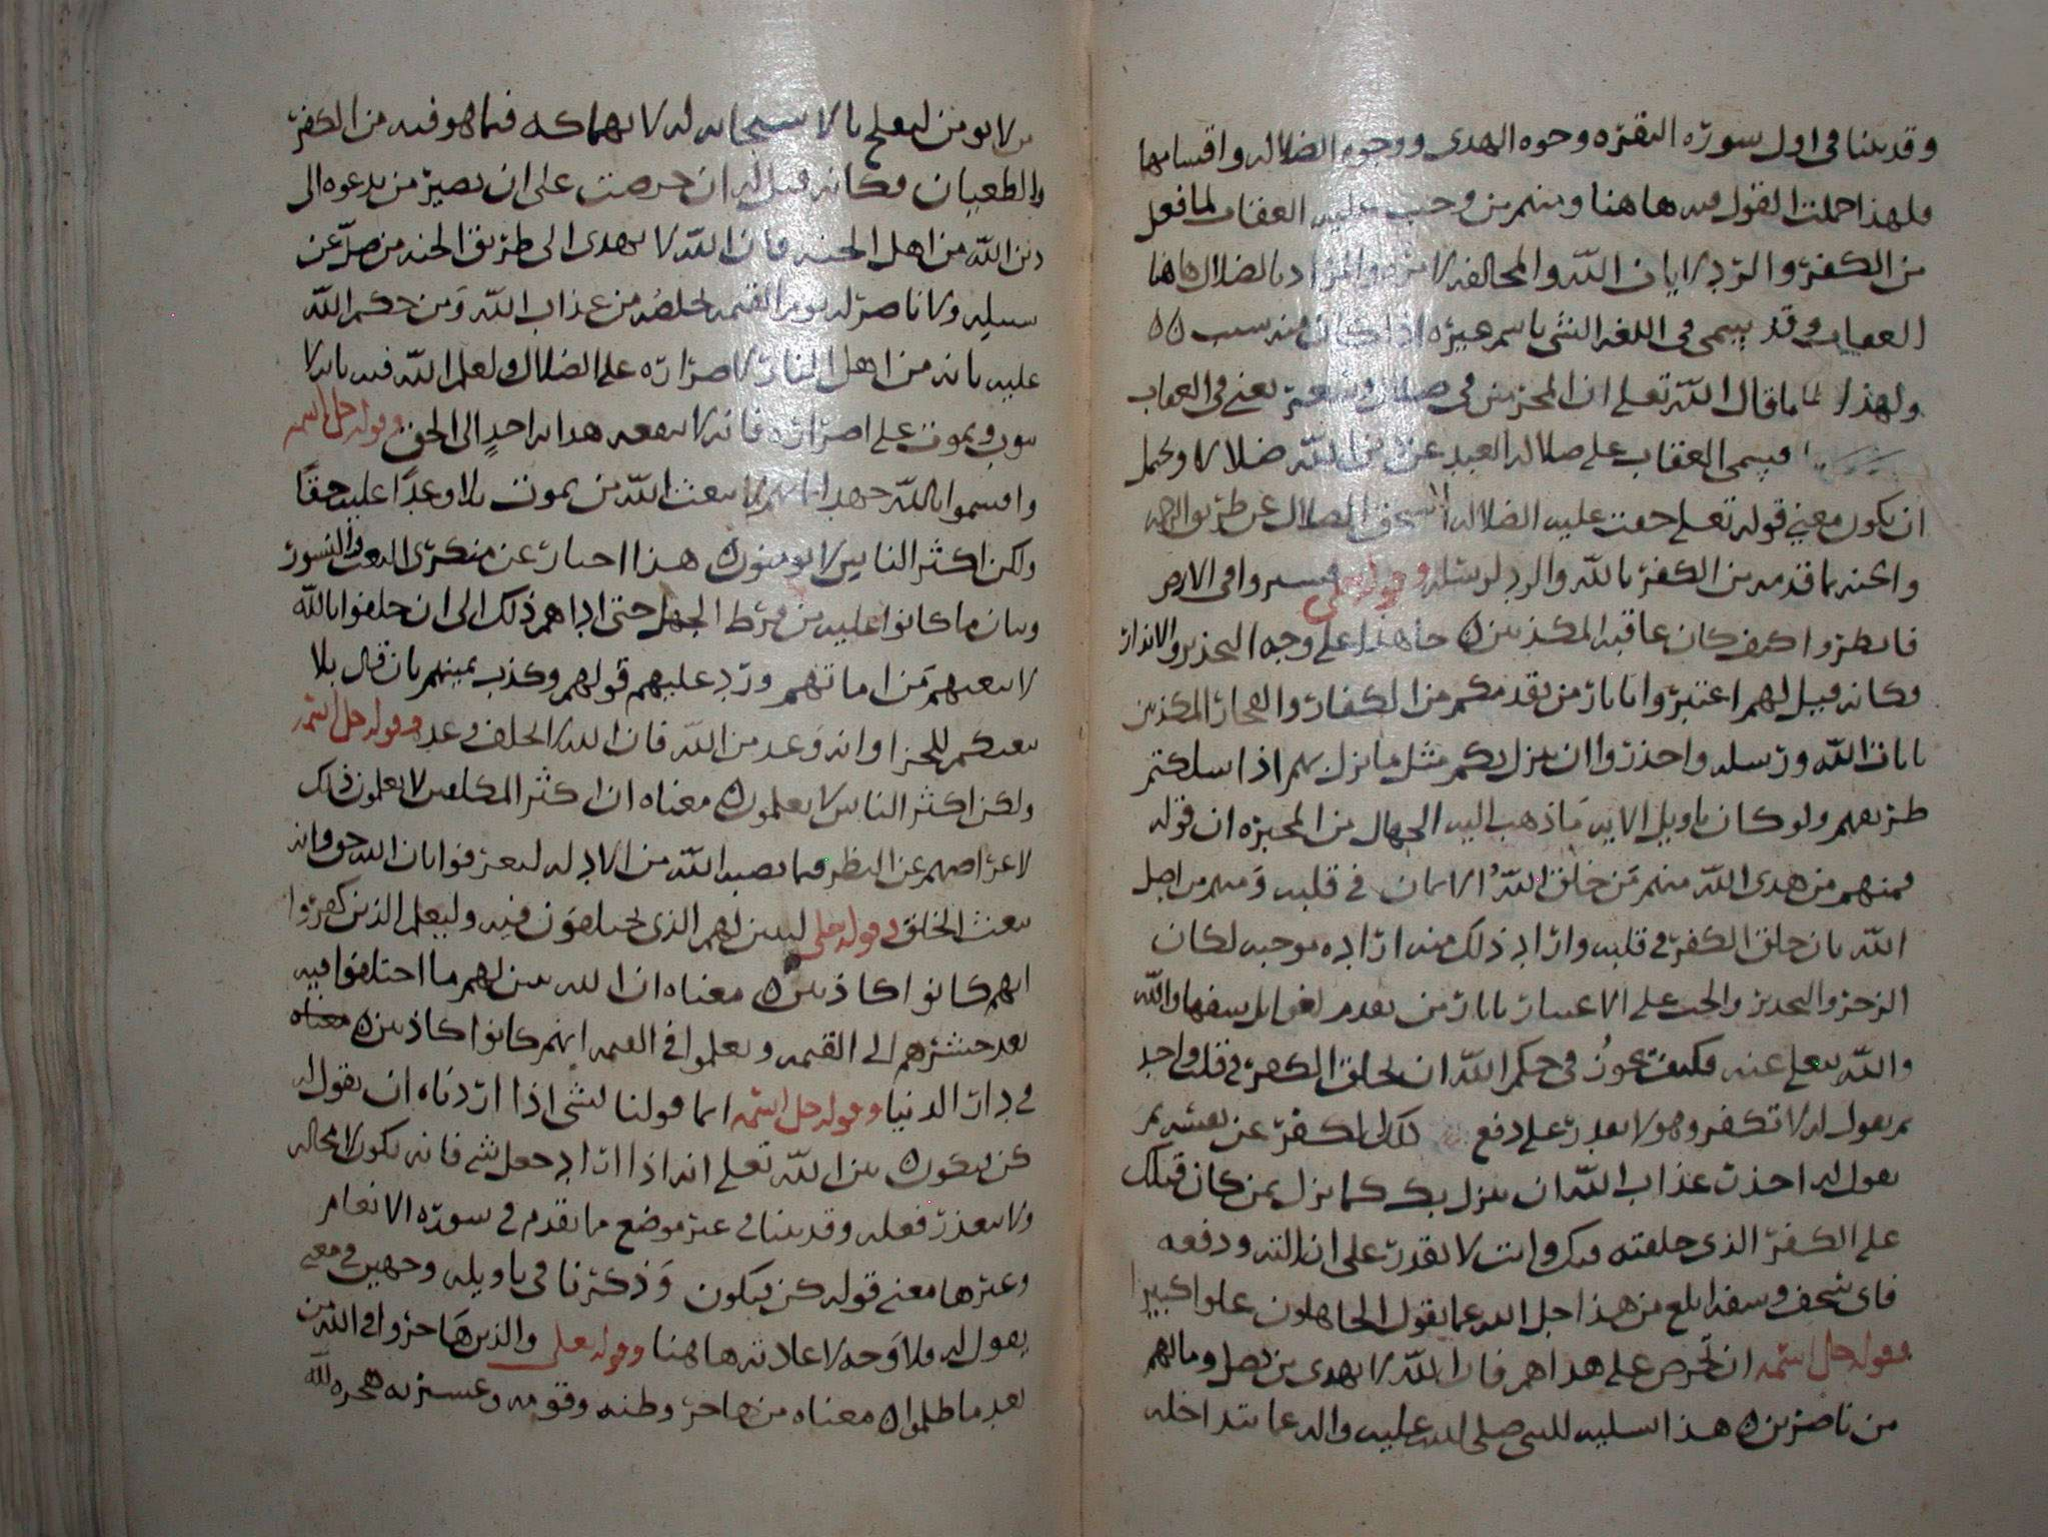 وقد بينا في اول سورة البقرة وجوه الهدى ووجوه الضلاله واقسامها
فلهذا اجملت القول فيه هاهنا ومنهم من وجب عليه العقاب لما فعل
من الكفر والرد لايات الله والمخالفه لامره والمراد بالضلال هاهنا
العقاب وقد يسمى في اللغه الشي باسم غيره اذا كان منه بسبب
ولهذا ما قال الله تعلى ان المجرمين في ضلال وسعر يعني في العقاب
فسمى العقاب على ضلاله العبد عن دين الله ضلالا ويحتمل
ان يكون معنى قوله تعلى حقت عليه الضلاله استحق الضلال عن طريق الرحمه
والجنه بما قدمه من الكفر بالله والرد لرسله وقوله تعلى فسيروا في الارض
فانظروا كيف كان عاقبه المكذبين جا هذا على وجه التحذير والانذار
فكانه قيل لهم اعتبروا باثار من تقدمكم من الكفار والفجار المكذبين
بايات الله ورسله واحذروا ان ينزل بكم مثل ما نزل بهم اذا سلكتم
طريقهم ولو كان تاويل الايه ما ذهب اليه الجهال من المجبره ان قوله
فمنهم من هدى الله منهم من خلق الله الايمان في قلبه ومنهم من اضل
الله بان خلق الكفر في قلبه واراد ذلك منه اراده موجبه لكان
الزجر والتحذير والحث على الاعتبار باثار من تقدم لغوا بل سفها والله
والله تعلى عنه فكيف يجوز في حكم الله ان يخلق الكفر في قلب واحد
ثم يقول له لا تكفر وهو لا يقدر على دفع ذلك الكفر عن نفسه ثم
يقول له احذر عذاب الله ان ينزل بك كما نزل بمن كان قبلك
على الكفر الذي خلقته فيك وانت لا تقدر على ازالته ودفعه
فاي سخف وسفه ابلغ من هذا جل الله عما يقول الجاهلون علوا كبيرا
وقوله جل اسمه ان تحرص على هداهم فان الله لا يهدي من يضل وما لهم
من ناصرين هذا تسليه للنبي صلى الله عليه واله عما تداخله
لا يومن ليعلم بالله سبحانه له لانهماكه فيما هو فيه من الكفر
والطغيان فكانه قيل له ان حرصت على ان يصير من يدعوه الى
دين الله من اهل الجنه فان الله لا يهدي الى طريق الجنه من ضل عن
سبيله ولا ناصر له يوم القيمه يخلصه من عذاب الله ومن حكم الله
عليه بانه من اهل النار لاصراره على الضلال ولعلم الله فيه بانه لا
يتوب ويموت على اصراره فانه لا تنفعه هدايه احد الى الحق وقوله جل اسمه
واقسموا بالله جهد ايمانهم لا يبعث الله من يموت بلا وعدا عليه حقا
ولكن اكثر الناس لا يومنون هذا اخبار عن منكري البعث والنشور
وبيان ما كانوا عليه من فرط الجهل حتى اداهم ذلك الى ان حلفوا بالله
لا يبعثهم من اماتهم ورد عليهم قولهم وكذب يمينهم بان قال بلا
يبعثكم للجزا وانه وعد من الله فان الله لا يخلف وعده وقوله جل اسمه
ولكن اكثر الناس لا يعلمون معناه ان اكثر المكلفين لا يعلمون ذلك
لاعراضهم عن النظر فيما نصبه الله من الادله ليعرفوا بان الله حق وانه
يبعث الخلق وقوله تعلى ليبين لهم الذي يختلفون فيه وليعلم الذين كفروا
انهم كانوا كاذبين معناه ان الله يبين لهم ما اختلفوا فيه
بعد حشرهم الى القيمه ويعلموا في القيمه انهم كانوا كاذبين معناه
في دار الدنيا وقوله جل اسمه انما قولنا لشي اذا اردناه ان نقول له
كن فيكون بين الله تعلى انه اذا اراد جعل شي فانه يكون لا محاله
ولا يتعذر فعله وقد بينا في غير موضع ما تقدم في سورة الانعام
وغيرها معنى قوله كن فيكون وذكرنا في تاويله وجهين في معنى
يقول له فلا وجه لاعادته هاهنا وقوله تعلى والذين هاجروا في الله من
بعد ما ظلموا معناه من هاجر وطنه وقومه وعشيرته هجره لله